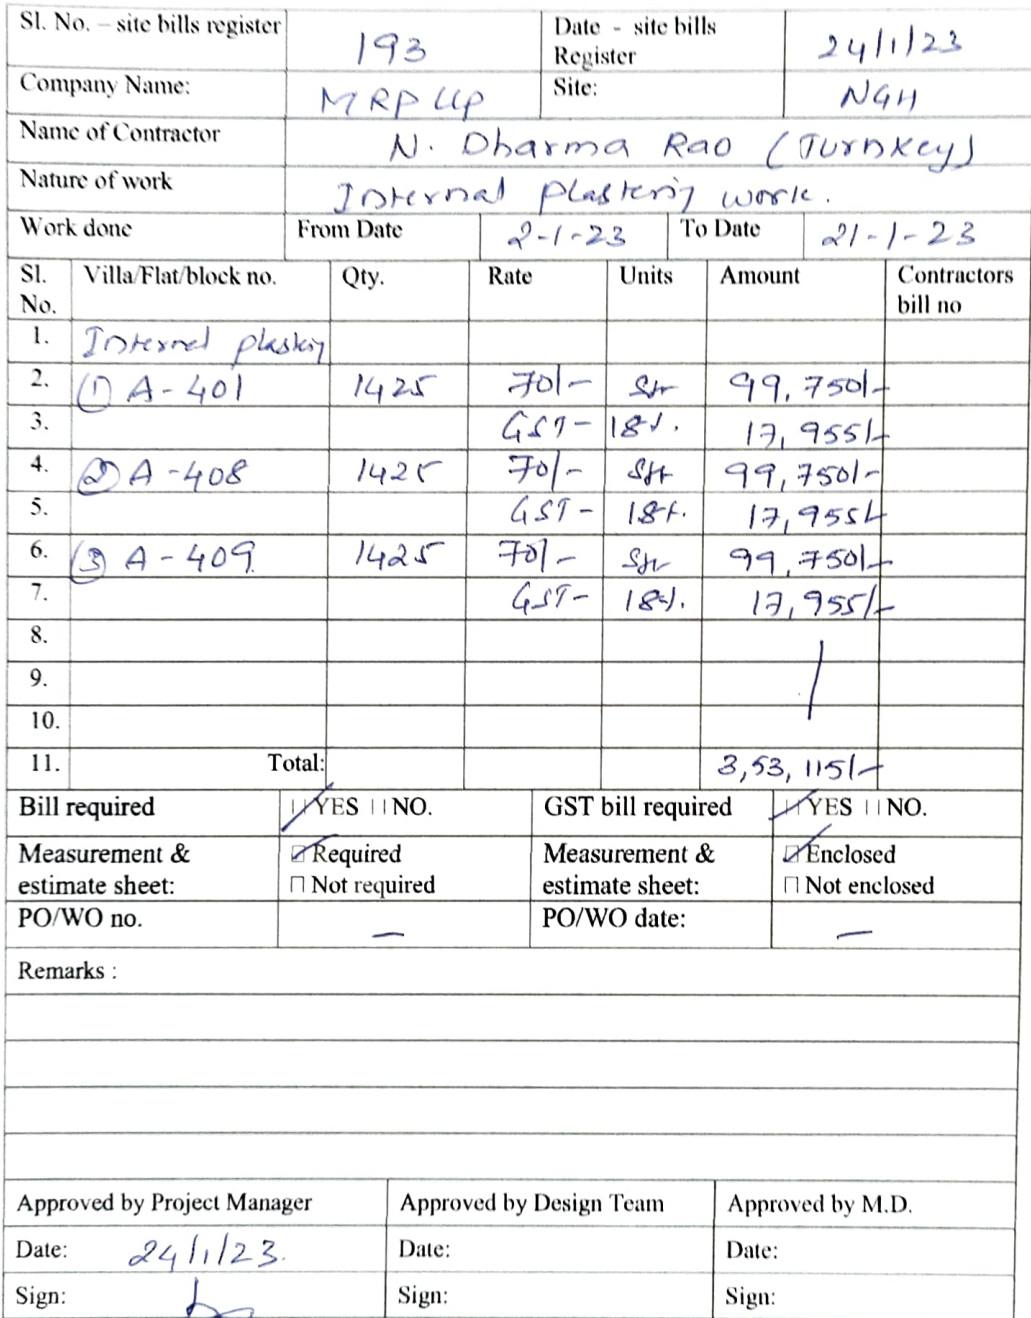 Sl. No. – site bills register 193 Date - site bills Register 24/1/23
Company Name: MRP LLP Site: NGH
Name of Contractor N. Dharma Rao (Turnkey)
Nature of work Internal plastering work.
Work done From Date 2-1-23 To Date 21-1-23
Sl. No. Villa/Flat/block no. Qty. Rate Units Amount Contractors bill no
1. Internal plastering
2. (1) A-401 1425 70/- Sft 99,750/-
3. GST- 18%. 17,955/-
4. (2) A-408 1425 70/- Sft 99,750/-
5. GST- 18%. 17,955/-
6. (3) A-409. 1425 70/- Sft 99,750/-
7. GST- 18%. 17,955/-
8.
9.
10.
11. Total: 3,53,115/-
Bill required YES NO. GST bill required YES NO.
Measurement & estimate sheet: Required Measurement & estimate sheet: Enclosed
Not required Not enclosed
PO/WO no. — PO/WO date: —
Remarks :
Approved by Project Manager Approved by Design Team Approved by M.D.
Date: 24/1/23. Date: Date:
Sign: Sign: Sign: